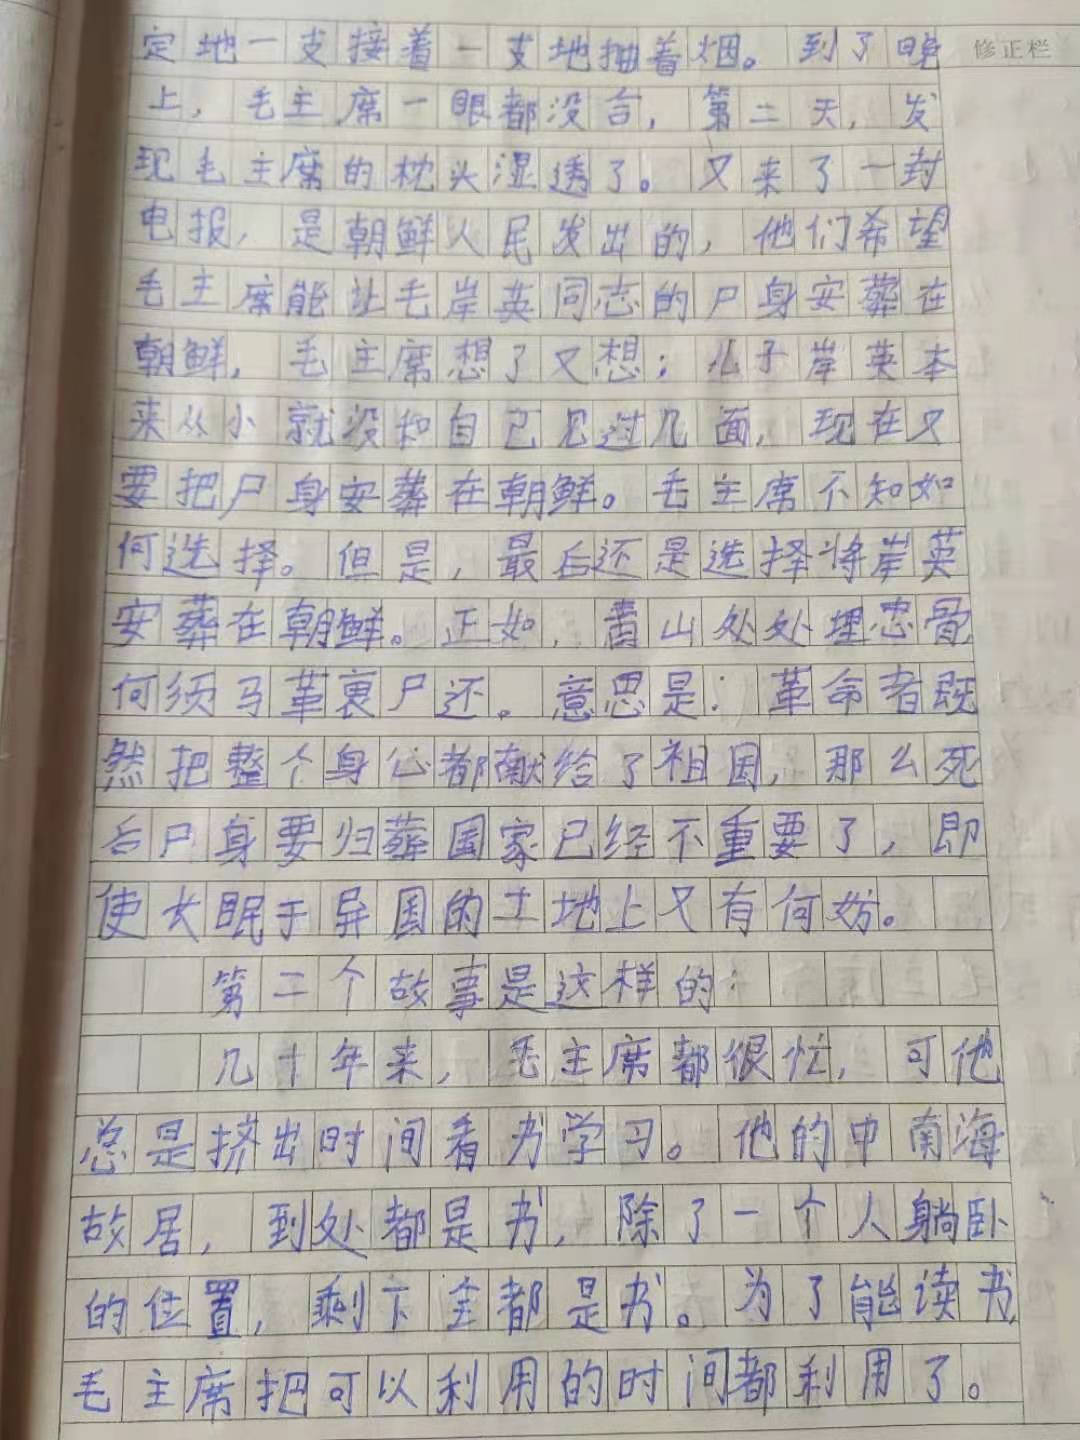 定地一支接着一支地抽着烟。到了晚
修正栏
上，毛主席一眼都没合，第二天，发
现毛主席的枕头湿透了。又来了一封
电报，是朝鲜人民发出的，他们希望
毛主席能让毛岸英同志的尸身安葬在
朝鲜，毛主席想了又想：儿子岸英本
来从小就没和自己见过几面，现在又
要把尸身安葬在朝鲜。毛主席不知如
何选择。但是，最后还是选择将岸英
安葬在朝鲜。正如，青山处处埋忠骨
何须马革裹尸还。意思是：革命者既
然把整个身心都献给了祖国，那么死
后尸身要归葬国家已经不重要了，即
使长眠于异国的土地上又有何妨。
第二个故事是这样的：
几十年来，毛主席都很忙，可他
总是挤出时间看书学习。他的中南海
故居，到处都是书，除了一个人躺卧
的位置，剩下全都是书。为了能读书，
毛主席把可以利用的时间都利用了。